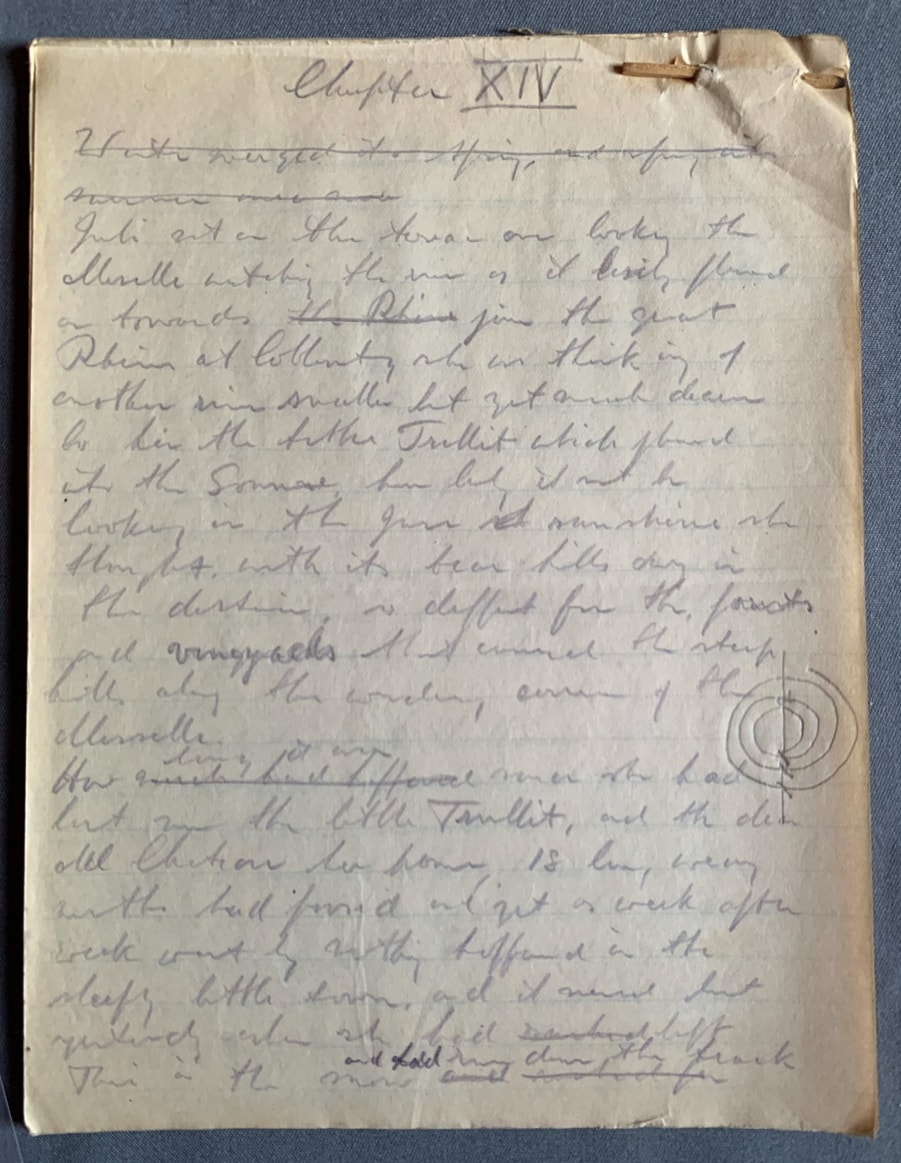 Chapter XIV
Winter merged into Spring, and spring into
summer
Juli sat on the terrace over looking the
Moselle watching the river as it lazily flowed
on towards the Rhine join the great
Rhine at Coblentz she was thinking of
another river smaller but yet much dearer
to her the little Trullit which flowed
into the Somme, how lovely it must be
looking in the June sunshine she
thought, with its bear hills away in
the distance, so different from the forests
and vineyards that covered the steep
hills along the winding course of the
Moselle.
long it was
How much had happened since she had
last seen the little Trullit, and the dear
old Chateau her home, 18 long weary
months had passed and yet as week after
week went by nothing happened in the
sleepy little town, and it seemed but
yesterday when she had left
and had down the track
This in the snow and